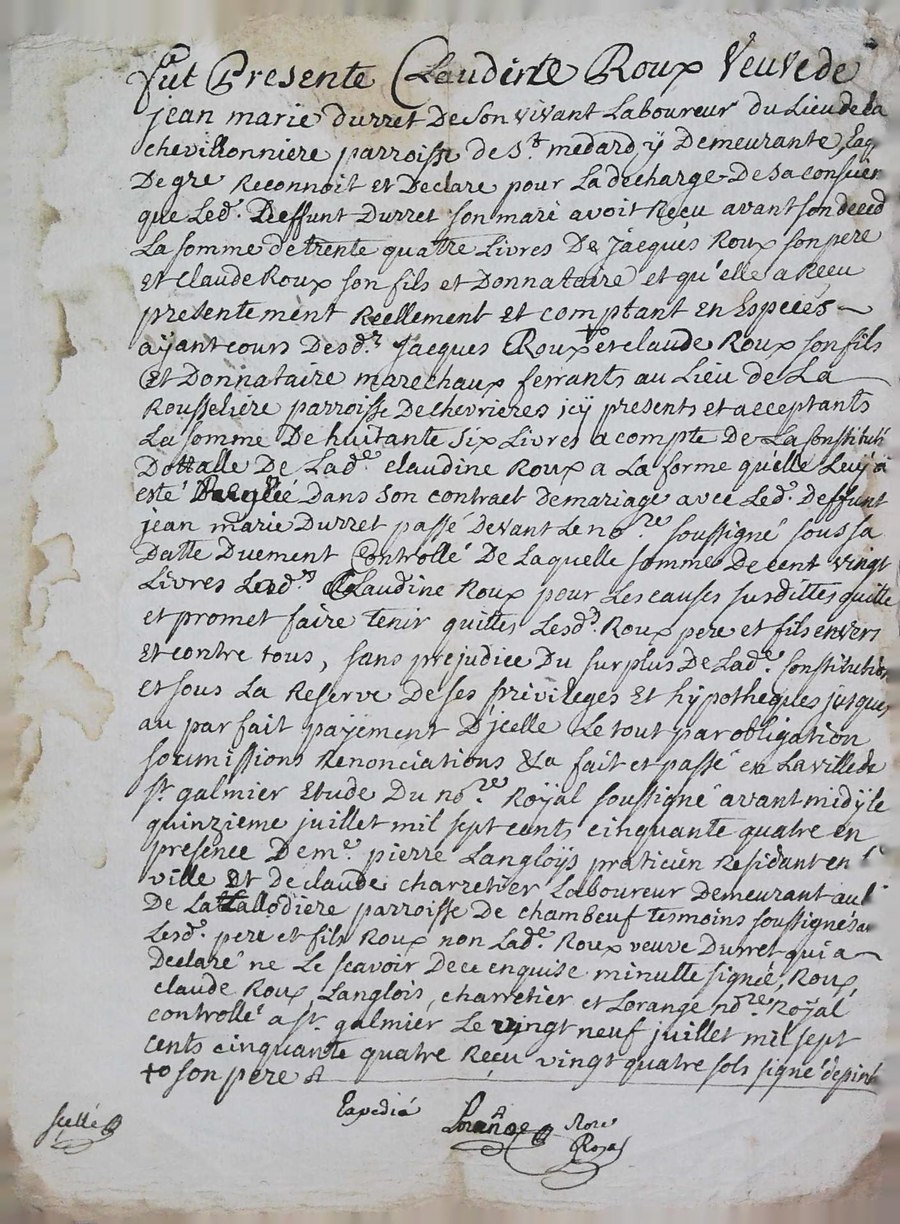 fut Presente Claudine Roux Veuve de
jean marie durret De Son vivant Laboureur du Lieu de La
chevillonniere parroisse de St. medard ÿ Demeurante, Laq
De gre Reconnoit et Declare pour La decharge De Sa conscien
que Led. Deffunt Durret son mari avoit Reçu avant son deced
La somme de trente quatre Livres De Jacques Roux son pere
et Claude Roux son fils et Donnataire et qu'elle a Recu
presentement Reellement et comptant en Especes
aÿant cours Desd.rs Jacques Roux + et claude Roux son fils
Et Donnataire marechaux ferrants au Lieu de La
Rousseliere parroisse De chevrieres icÿ presents et acceptants
La somme De huitante six Livres a compte de La Constituti
Dottalle De Lad.e claudine Roux a La forme qu'elle Luÿ a
esté Reglée Dans son contract de mariage avec Led. Deffunt
jean marie Durret passé Devant Le no.re soussigné sous sa
Datte Duement Controllé De Laquelle somme De cent vingt
Livres Claudine Roux pour Les causes susdittes quitte
et promet faire tenir quittes Lesd.s Roux pere et fils envers
et contre tous, sans prejudice Du surplus De Lad.e Constitution
et sous La Reserve De ses privileges Et hÿpotheques jusques
au parfait paÿement D'jcelle Le tout par obligation
soumissions Renonciations &a fait et passé en La ville de
St. galmier Etude Du no.re Roÿal soussigné avant midÿ le
quinzieme juillet mil sept cents cinquante quatre en
presence De me. pierre Langloÿs praticien Residant en
ville Et De claude charretier Laboureur Demeurant au
De La parroisse De chambeuf tesmoins soussignés
Lesd. pere et fils Roux non Lad.e Roux veuve Durret qui a
Declaré ne Le scavoir De ce enquise minutte signée, Roux,
claude Roux, Langlois, charretier et Lorange no.re Roÿal
controllé a St. galmier Le vingt neuf juillet mil sept
cents cinquante quatre Reçu vingt quatre sols signé
+o son pere
scellé Expedié Lorange Nore
Royal